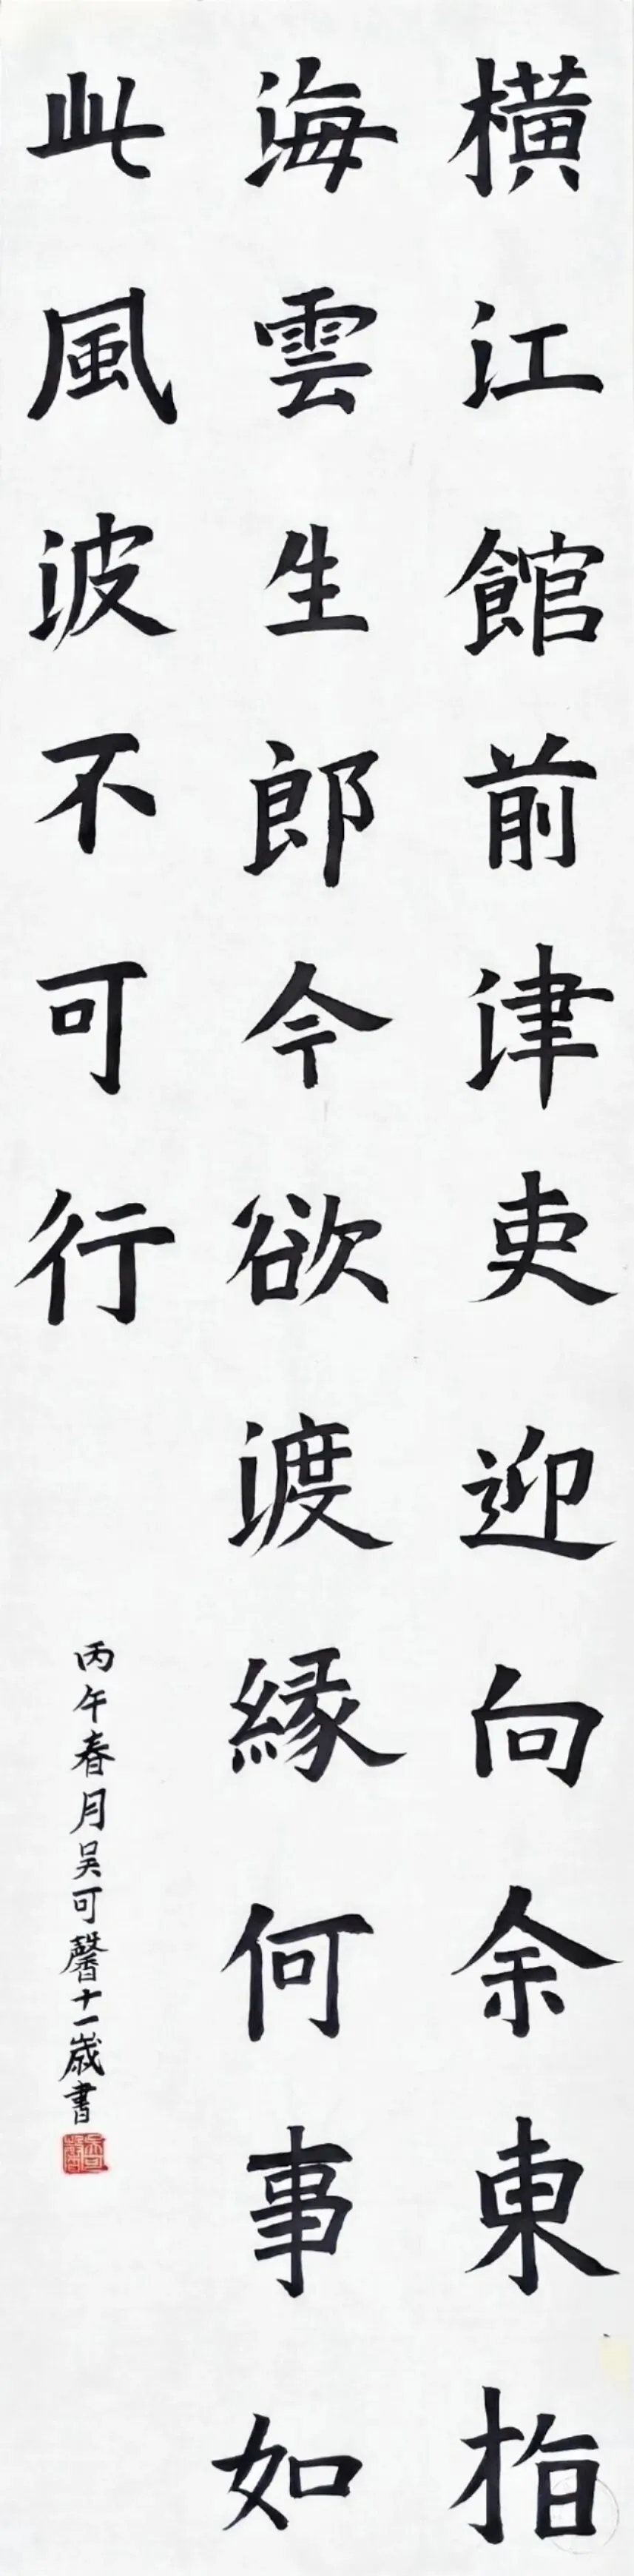 橫江館前津吏迎向余東指
海雲生郎今欲渡緣何事如
此風波不可行
丙午春月吳可馨十一歲書